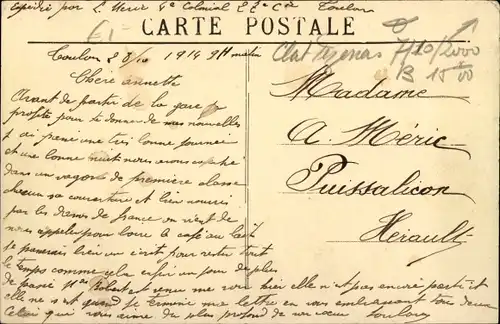 Expédié par L. Meric 4e Colonial Cie Toulon
CARTE POSTALE
Toulon 28/10 1914 9H matin
Chère annette
Avant de partir de la gare je
profite pour te donner de mes nouvelles
passé une très bonne journée
et une bonne nuit nous avons couché
dans un vagon de première classe
chacun sa couverture et bien nourri
par les dames de france on vient de
nous appeler pour boire le café au lait
je pourrais bien écrit pour rester tout
le temps comme cela enfin un jour de plus
de passé venu me voir hier elle n'est pas encore partie et
elle ne sait quand je termine ma lettre en vous embrassant tous deux
Celui qui vous aime du plus profond de son cœur
Madame
A. Méric
Puissalicon
Hérault